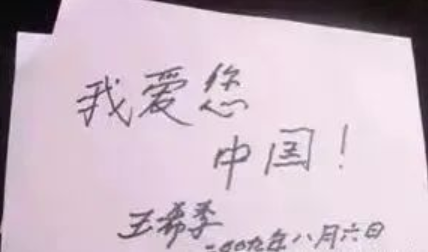 我爱您
中国！
王希季
二〇〇九年八月六日